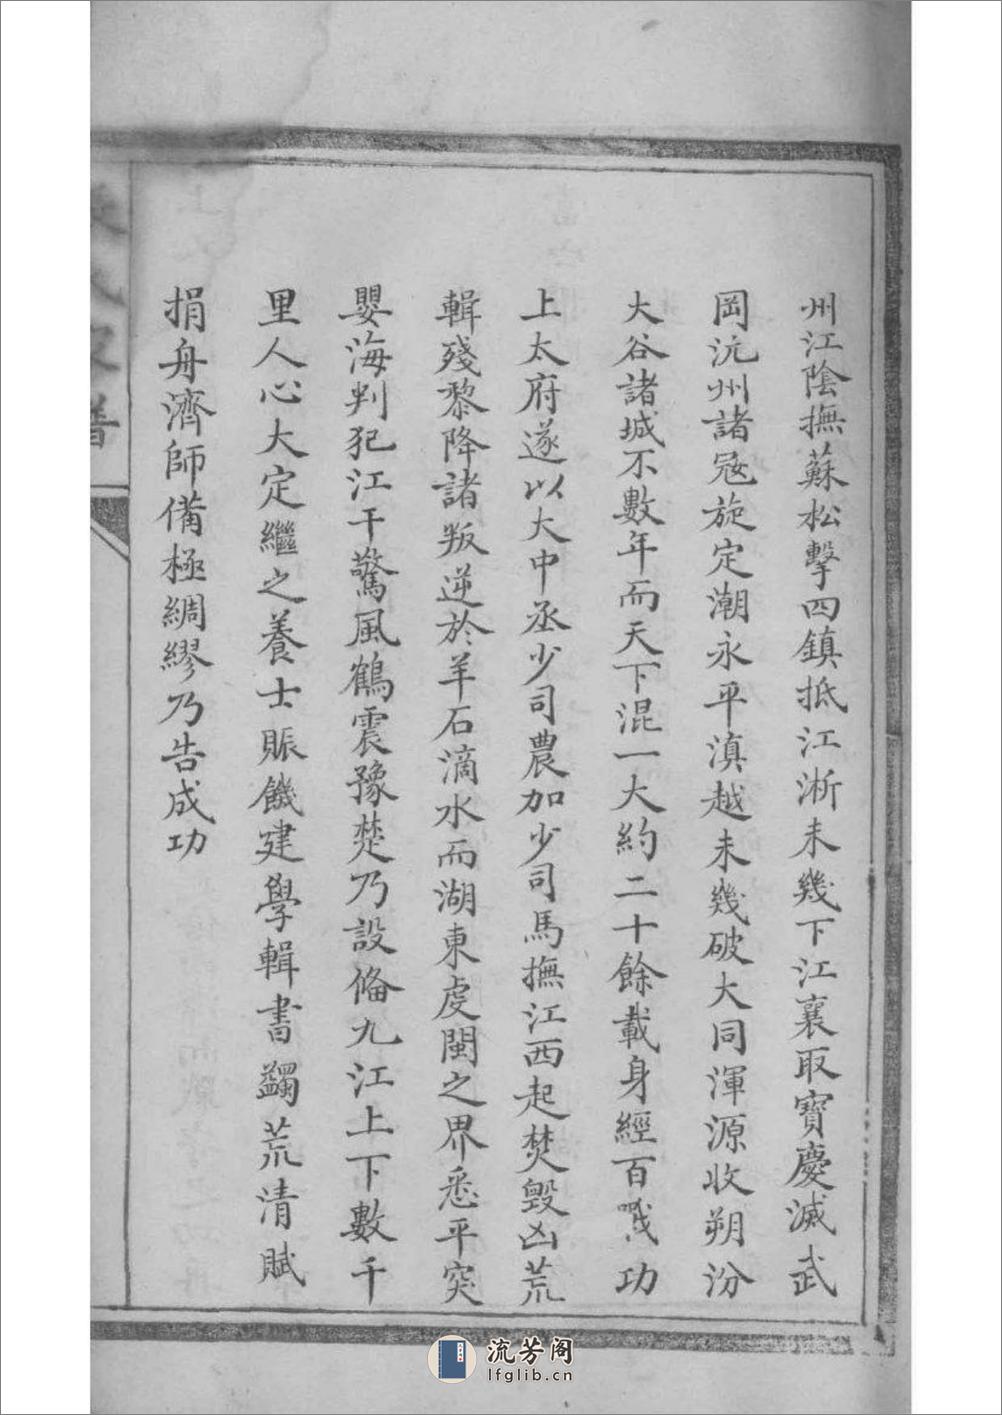 州江陰撫蘇松擊四鎮抵江淅未幾下江襄取寶慶滅武
岡沅州諸冦旋定潮永平滇越未幾破大同渾源收朔汾
大谷諸城不數年而天下混一大約二十餘載身經百戰功
上太府遂以大中丞少司農加少司馬撫江西起焚毀凶荒
輯殘黎降諸叛逆於羊石滴水而湖東虔閩之界悉平突
嬰海判犯江干驚風鶴震豫楚乃設僃九江上下數千
里人心大定繼之養士賑饑建學輯書蠲荒清賦
捐舟濟師備極綢繆乃告成功
流芳阁
lfglib.cn